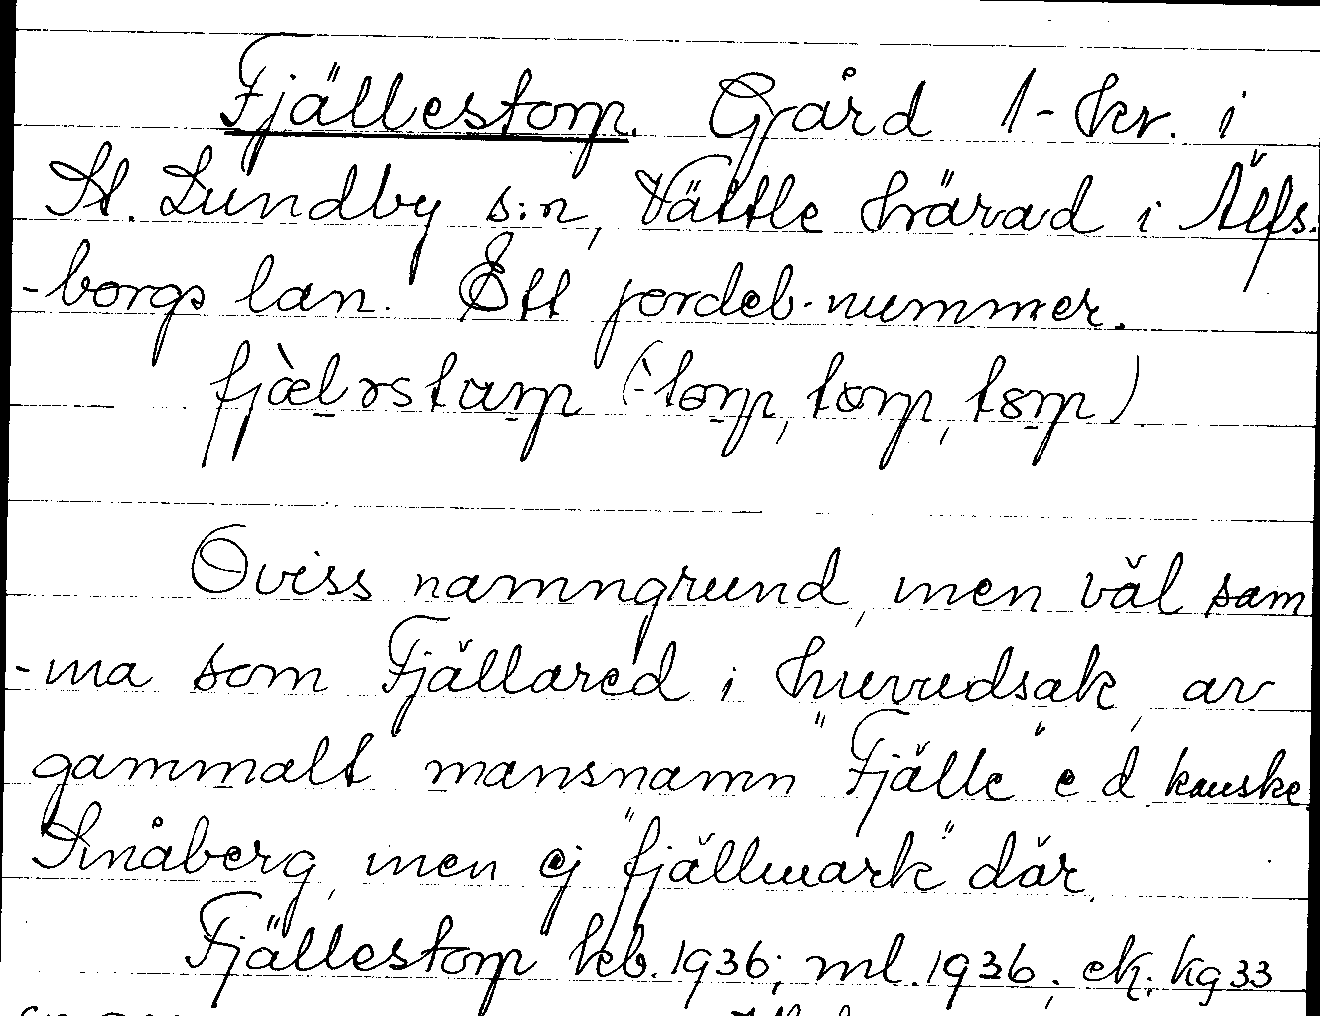 Fjällestorp. Gård 1-kv. i
St. Lundby s:n, Vättle härad i Älfs-
-borgs län. Ett jordeb.nummer.
fjæ̀l ɤstɑrp (-̀torp, torp, tɤrp)
Oviss namngrund, men väl sam
-ma som Fjällared i huvudsak, av
gammalt mansnamn "Fjälle" e d kanske.
Småberg, men ej "fjällmark" där.
Fjällestorp kb. 1936; ml. 1936; ek; kg 33